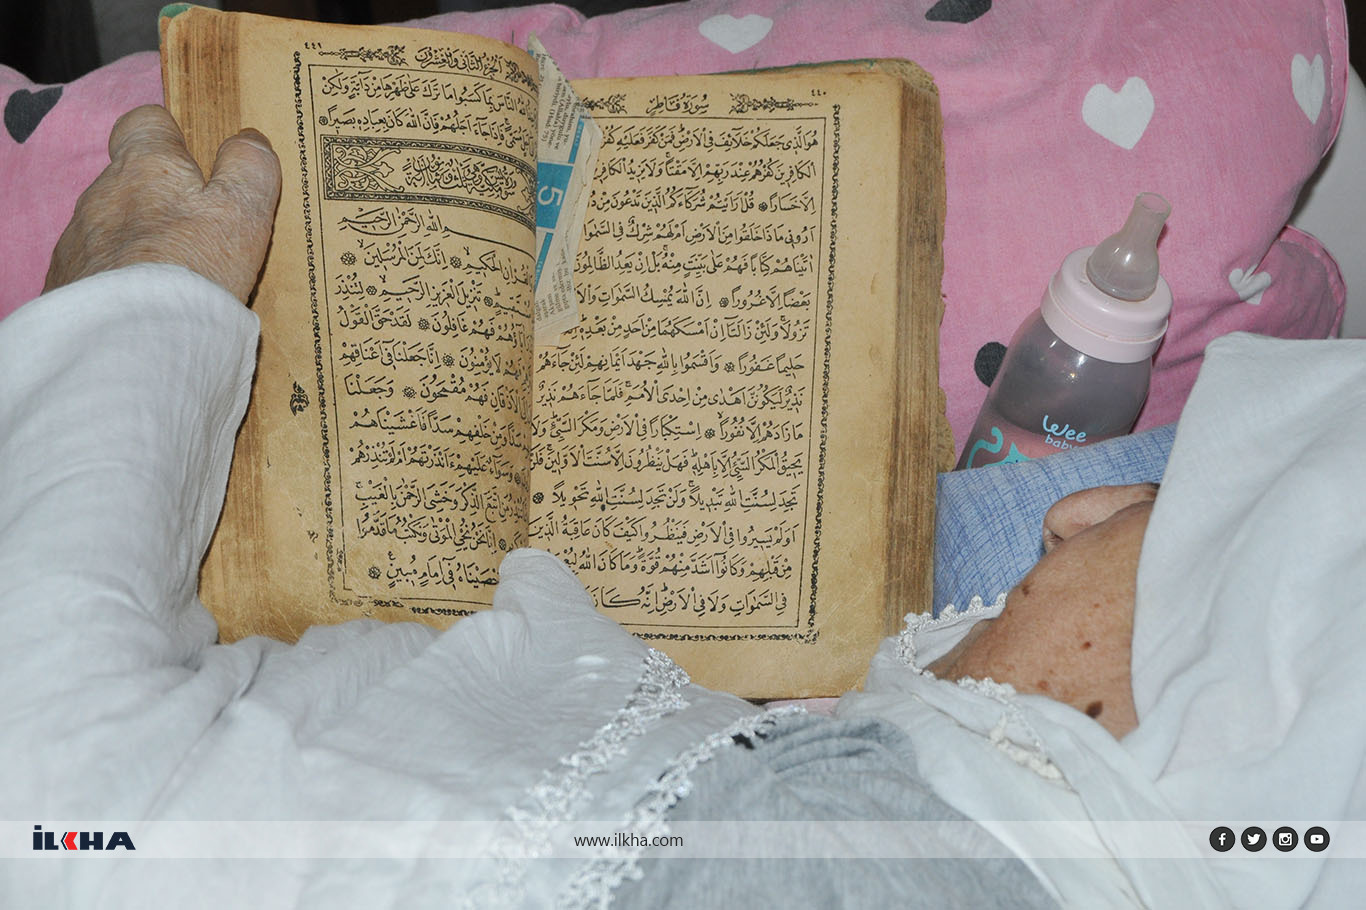 ٤٤٠
سورة فاطر
هُوَ الَّذِي جَعَلَكُمْ خَلَائِفَ فِي الْاَرْضِ فَمَنْ كَفَرَ فَعَلَيْهِ كُفْرُ
الْكَافِرِينَ كُفْرُهُمْ عِنْدَ رَبِّهِمْ اِلَّا مَقْتًا وَلَا يَزِيدُ الْكَافِرِ
اِلَّا خَسَارًا قُلْ اَرَاَيْتُمْ شُرَكَاءَكُمُ الَّذِينَ تَدْعُونَ مِنْ دُ
اَرُونِي مَاذَا خَلَقُوا مِنَ الْاَرْضِ اَمْ لَهُمْ شِرْكٌ فِي السَّمٰوَا
اٰتَيْنَاهُمْ كِتَابًا فَهُمْ عَلٰى بَيِّنَتٍ مِنْهُ بَلْ اِنْ يَعِدُ الظَّالِمُونَ
بَعْضًا اِلَّا غُرُورًا اِنَّ اللّٰهَ يُمْسِكُ السَّمٰوَاتِ وَالْاَ
تَزُولَا وَلَئِنْ زَالَتَا اِنْ اَمْسَكَهُمَا مِنْ اَحَدٍ مِنْ بَعْدِهِ
حَلِيمًا غَفُورًا وَاَقْسَمُوا بِاللّٰهِ جَهْدَ اَيْمَانِهِمْ لَئِنْ جَاءَهُمْ
نَذِيرٌ لَيَكُونُنَّ اَهْدٰى مِنْ اِحْدَى الْاُمَمِ فَلَمَّا جَاءَهُمْ نَذِيرٌ
مَا زَادَهُمْ اِلَّا نُفُورًا اِسْتِكْبَارًا فِي الْاَرْضِ وَمَكْرَ السَّيِّئِ وَلَا
يَحِيقُ الْمَكْرُ السَّيِّئُ اِلَّا بِاَهْلِهِ فَهَلْ يَنْظُرُونَ اِلَّا سُنَّتَ الْاَوَّلِينَ فَلَنْ
تَجِدَ لِسُنَّتِ اللّٰهِ تَبْدِيلًا وَلَنْ تَجِدَ لِسُنَّتِ اللّٰهِ تَحْوِيلًا
اَوَلَمْ يَسِيرُوا فِي الْاَرْضِ فَيَنْظُرُوا كَيْفَ كَانَ عَاقِبَةُ الَّذِينَ
مِنْ قَبْلِهِمْ وَكَانُوا اَشَدَّ مِنْهُمْ قُوَّةً وَمَا كَانَ اللّٰهُ لِيُعْ
فِي السَّمٰوَاتِ وَلَا فِي الْاَرْضِ اِنَّهُ كَانَ
٤٤١
الجزء الثاني والعشرون
النَّاسَ بِمَا كَسَبُوا مَا تَرَكَ عَلٰى ظَهْرِهَا مِنْ دَابَّةٍ وَلٰكِنْ
فَاِذَا جَاءَ اَجَلُهُمْ فَاِنَّ اللّٰهَ كَانَ بِعِبَادِهِ بَصِيرًا
اللّٰهِ الرَّحْمٰنِ الرَّحِيمِ
الْحَكِيمِ اِنَّكَ لَمِنَ الْمُرْسَلِينَ
تَنْزِيلَ الْعَزِيزِ الرَّحِيمِ لِتُنْذِرَ
فَهُمْ غَافِلُونَ لَقَدْ حَقَّ الْقَوْلُ
لَا يُؤْمِنُونَ اِنَّا جَعَلْنَا فِي اَعْنَاقِهِمْ
الْاَذْقَانِ فَهُمْ مُقْمَحُونَ وَجَعَلْنَا
سَدًّا وَمِنْ خَلْفِهِمْ سَدًّا فَاَغْشَيْنَاهُمْ
وَسَوَاءٌ عَلَيْهِمْ ءَاَنْذَرْتَهُمْ اَمْ لَمْ تُنْذِرْهُمْ
مَنِ اتَّبَعَ الذِّكْرَ وَخَشِيَ الرَّحْمٰنَ بِالْغَيْبِ
اِنَّا نَحْنُ نُحْيِ الْمَوْتٰى وَنَكْتُبُ مَا قَدَّمُوا
اَحْصَيْنَاهُ فِي اِمَامٍ مُبِينٍ
5
Wee
baby
İLKHA
www.ilkha.com